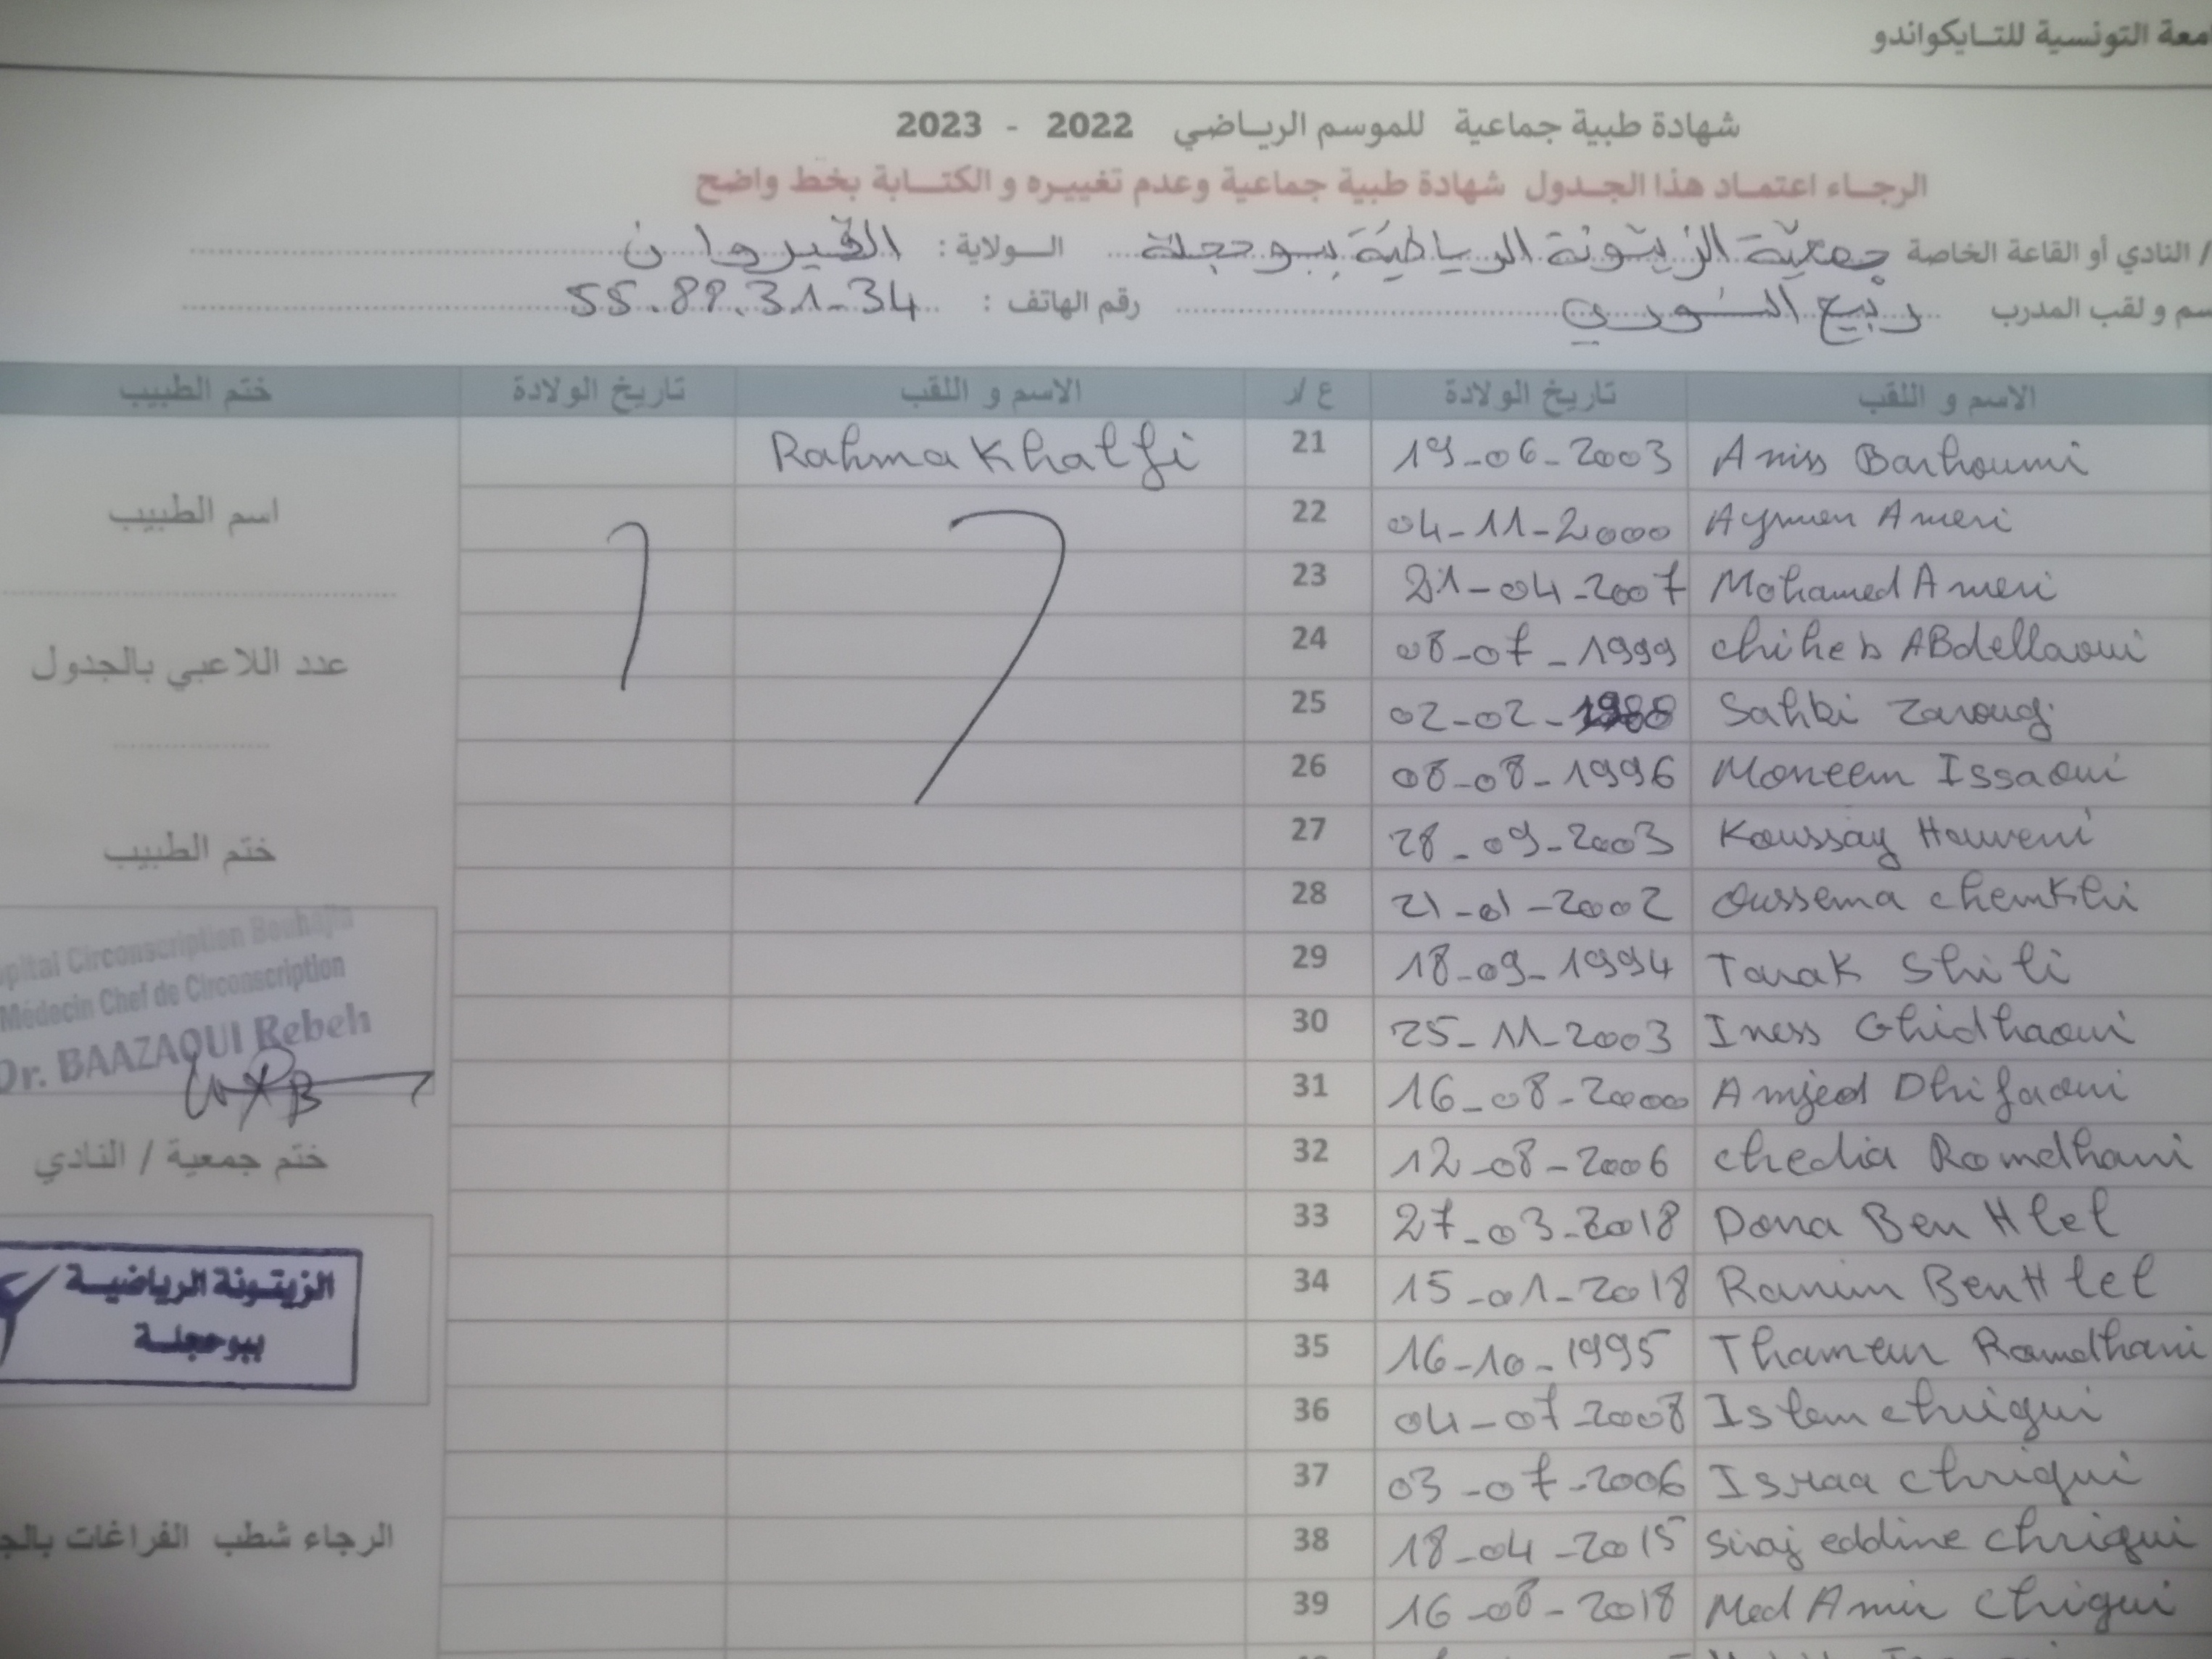 التونسية للتـايكواندو
شهادة طبية جماعية للموسم الرياضي 2022 - 2023
الرجـاء اعتمـاد هذا الجـدول شهادة طبية جماعية وعدم تغييـره و الكتـابة بخط واضح
/ النادي أو القاعة الخاصة جمعية الزيتونة الرياضية ببوحجلة الـولاية : القيروان
و لقب المدرب ربيع السوري رقم الهاتف : 55.89.31-34
الاسم و اللقب تاريخ الولادة ع /ر الاسم و اللقب تاريخ الولادة ختم الطبيب
Aniss Barhoumi 19-06-2003 21 Rahma Khalfi
Aymen Ameri 04-11-2000 22
اسم الطبيب
Mohamed Ameri 21-04-2007 23
chiheb ABdellaoui 08-07-1999 24
عدد اللاعبي بالجدول
Sahbi Zaroug 02-02-1988 25
Moneem Issaoui 08-08-1996 26
Koussay Houveni 28-09-2003 27
ختم الطبيب
Oussema chemkhi 21-01-2002 28
Tarak Shili 18-09-1994 29
Iness Ghidhaoui 25-11-2003 30
Circonscription Bouhajla
Médecin Chef de Circonscription
Dr. BAAZAOUI Rebeh
Amjed Dhifaoui 16-08-2000 31
chedia Romdhani 12-08-2006 32
ختم جمعية / النادي
Dona Ben Hlel 27-03-2018 33
Ranim Ben Hlel 15-01-2018 34
الزيتـونة الرياضيـة
ببوحجلـة
Thameur Romdhani 16-10-1995 35
Islem chrigui 04-07-2008 36
Israa chriqui 03-07-2006 37
Siraj eddine chriqui 18-04-2015 38
الرجاء شطب الفراغات
Med Amir chigui 16-08-2018 39